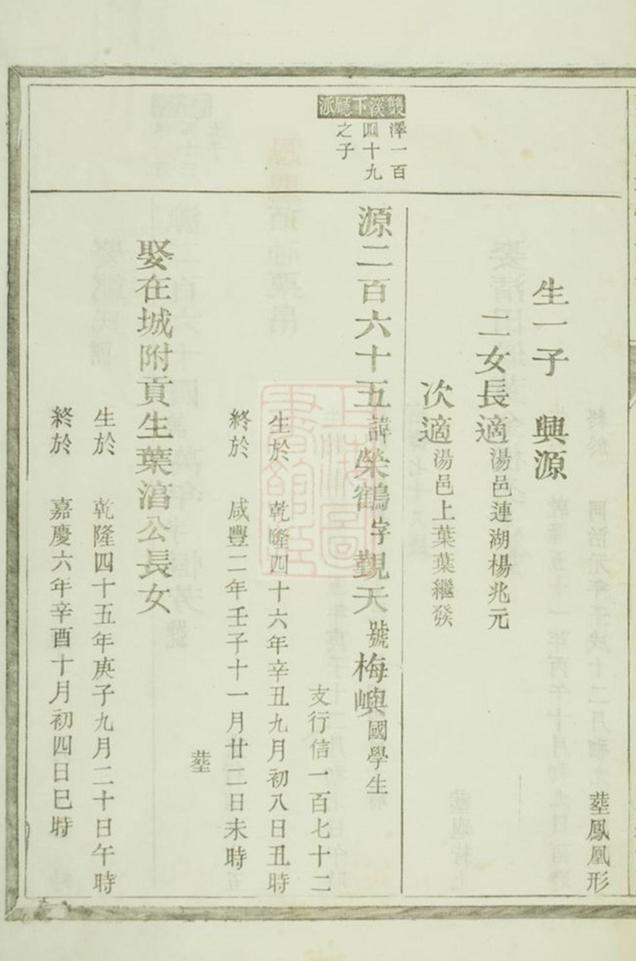 塟鳳凰形
生一子　興源
二女長適湯邑連湖楊兆元
次適湯邑上葉葉繼發
雙溪下廳派
澤一百
四十九
之子
源二百六十五諱榮鶴字覲天號梅嶼國學生
支行信一百七十二
生於　乾隆四十六年辛丑九月初八日丑時
終於　咸豐二年壬子十一月廿二日未時
塟
娶在城附貢生葉湻公長女
生於　乾隆四十五年庚子九月二十日午時
終於　嘉慶六年辛酉十月初四日巳時